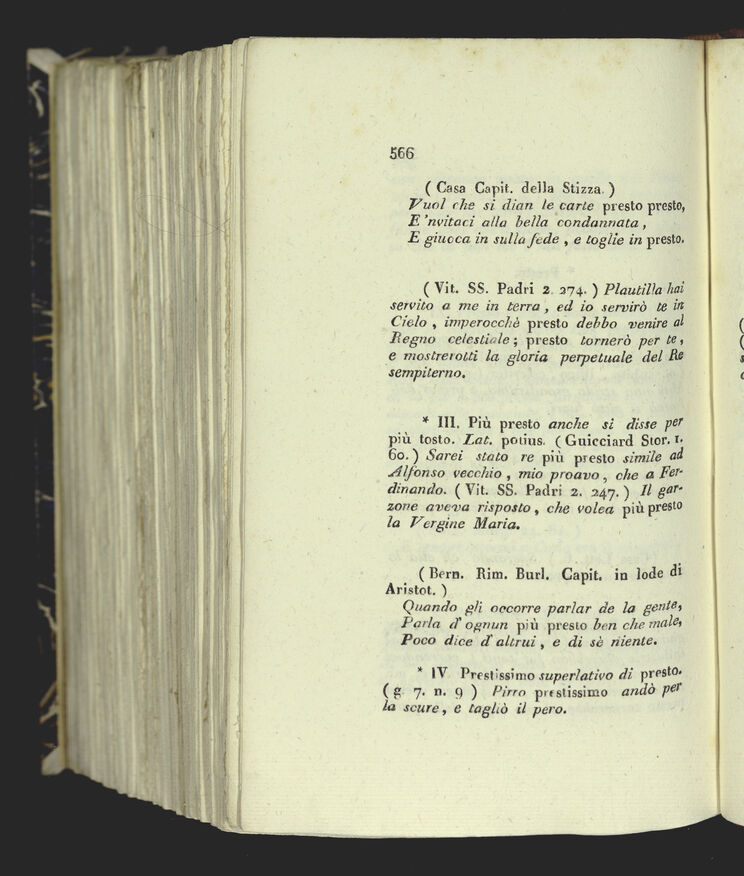 566
( Casa Capit. della Stizza. )
Vuol che si dian le carte presto presto,
E 'nvitaci alla bella condannata ,
E giuoca in sulla fede , e toglie in presto.
( Vit. SS. Padri 2. 274. ) Plautilla hai
servito a me in terra , ed io servirò te in
Cielo , imperocchè presto debbo venire al
Regno celestiale ; presto tornerò per te ,
e mostrerotti la gloria perpetuale del Re
sempiterno.
* III. Più presto anche si disse per
più tosto. Lat. potius. ( Guicciard Stor. 1.
60. ) Sarei stato re più presto simile ad
Alfonso vecchio , mio proavo , che a Fer-
dinando. ( Vit. SS. Padri 2. 247. ) Il gar-
zone aveva risposto , che volea più presto
la Vergine Maria.
( Bern. Rim. Burl. Capit. in lode di
Aristot. )
Quando gli occorre parlar de la gente,
Parla d' ognun più presto ben che male,
Poco dice d' altrui , e di sè niente.
* IV Prestissimo superlativo di presto.
( g. 7. n. 9 ) Pirro prestissimo andò per
la scure , e tagliò il pero.